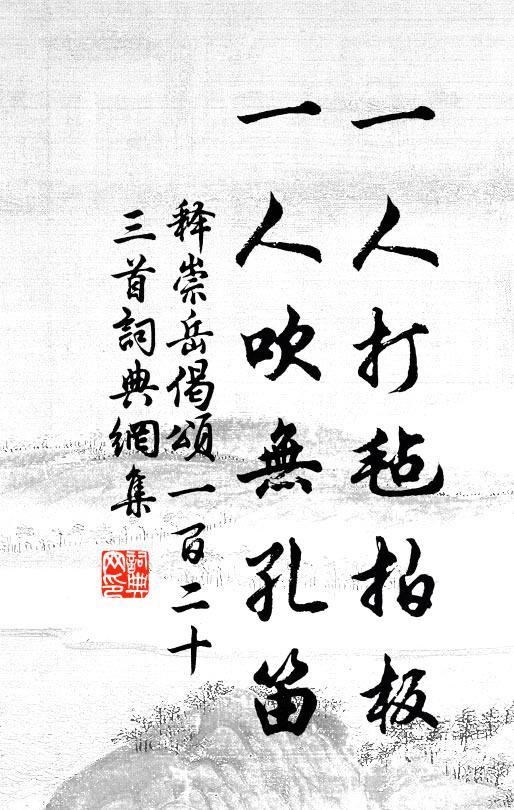 一人打毡拍板
一人吹無孔笛
释崇岳偈頌一百二十
三首詞典網集
詞典
网印